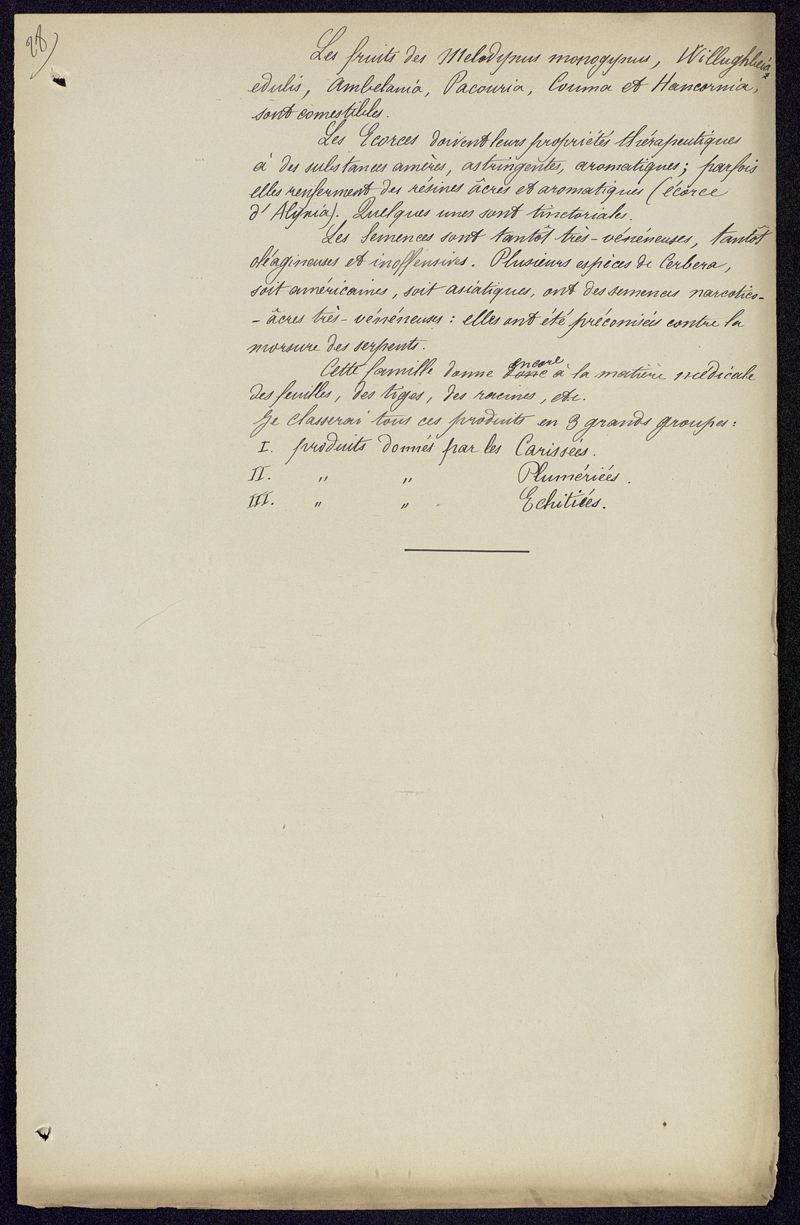 28)
Les fruits des Melodynus monogynus, Willughbeia
edulis, Ambelania, Pacouria, Couma et Hancornia,
sont comestibles.
Les Ecorces doivent leurs propriétés thérapeutiques
à des substances amères, astringentes, aromatiques; parfois
elles renferment des résines âcres et aromatiques (écorce
d'Alyxia). Quelques unes sont tinctoriales.
Les Semences sont tantôt très-vénéneuses, tantôt
oléagineuses et inoffensives. Plusieurs espèces de Cerbera,
soit américaines, soit asiatiques, ont des semences narcotico-
-âcres très-vénéneuses: elles ont été préconisées contre la
morsure des serpents.
encore
Cette famille donne donc à la matière médicale
des feuilles, des tiges, des racines, etc.
Je classerai tous ces produits en 3 grands groupes:
I. produits donnés par les Carissées.
II. " " Plumériées.
III. " " Echitiées.